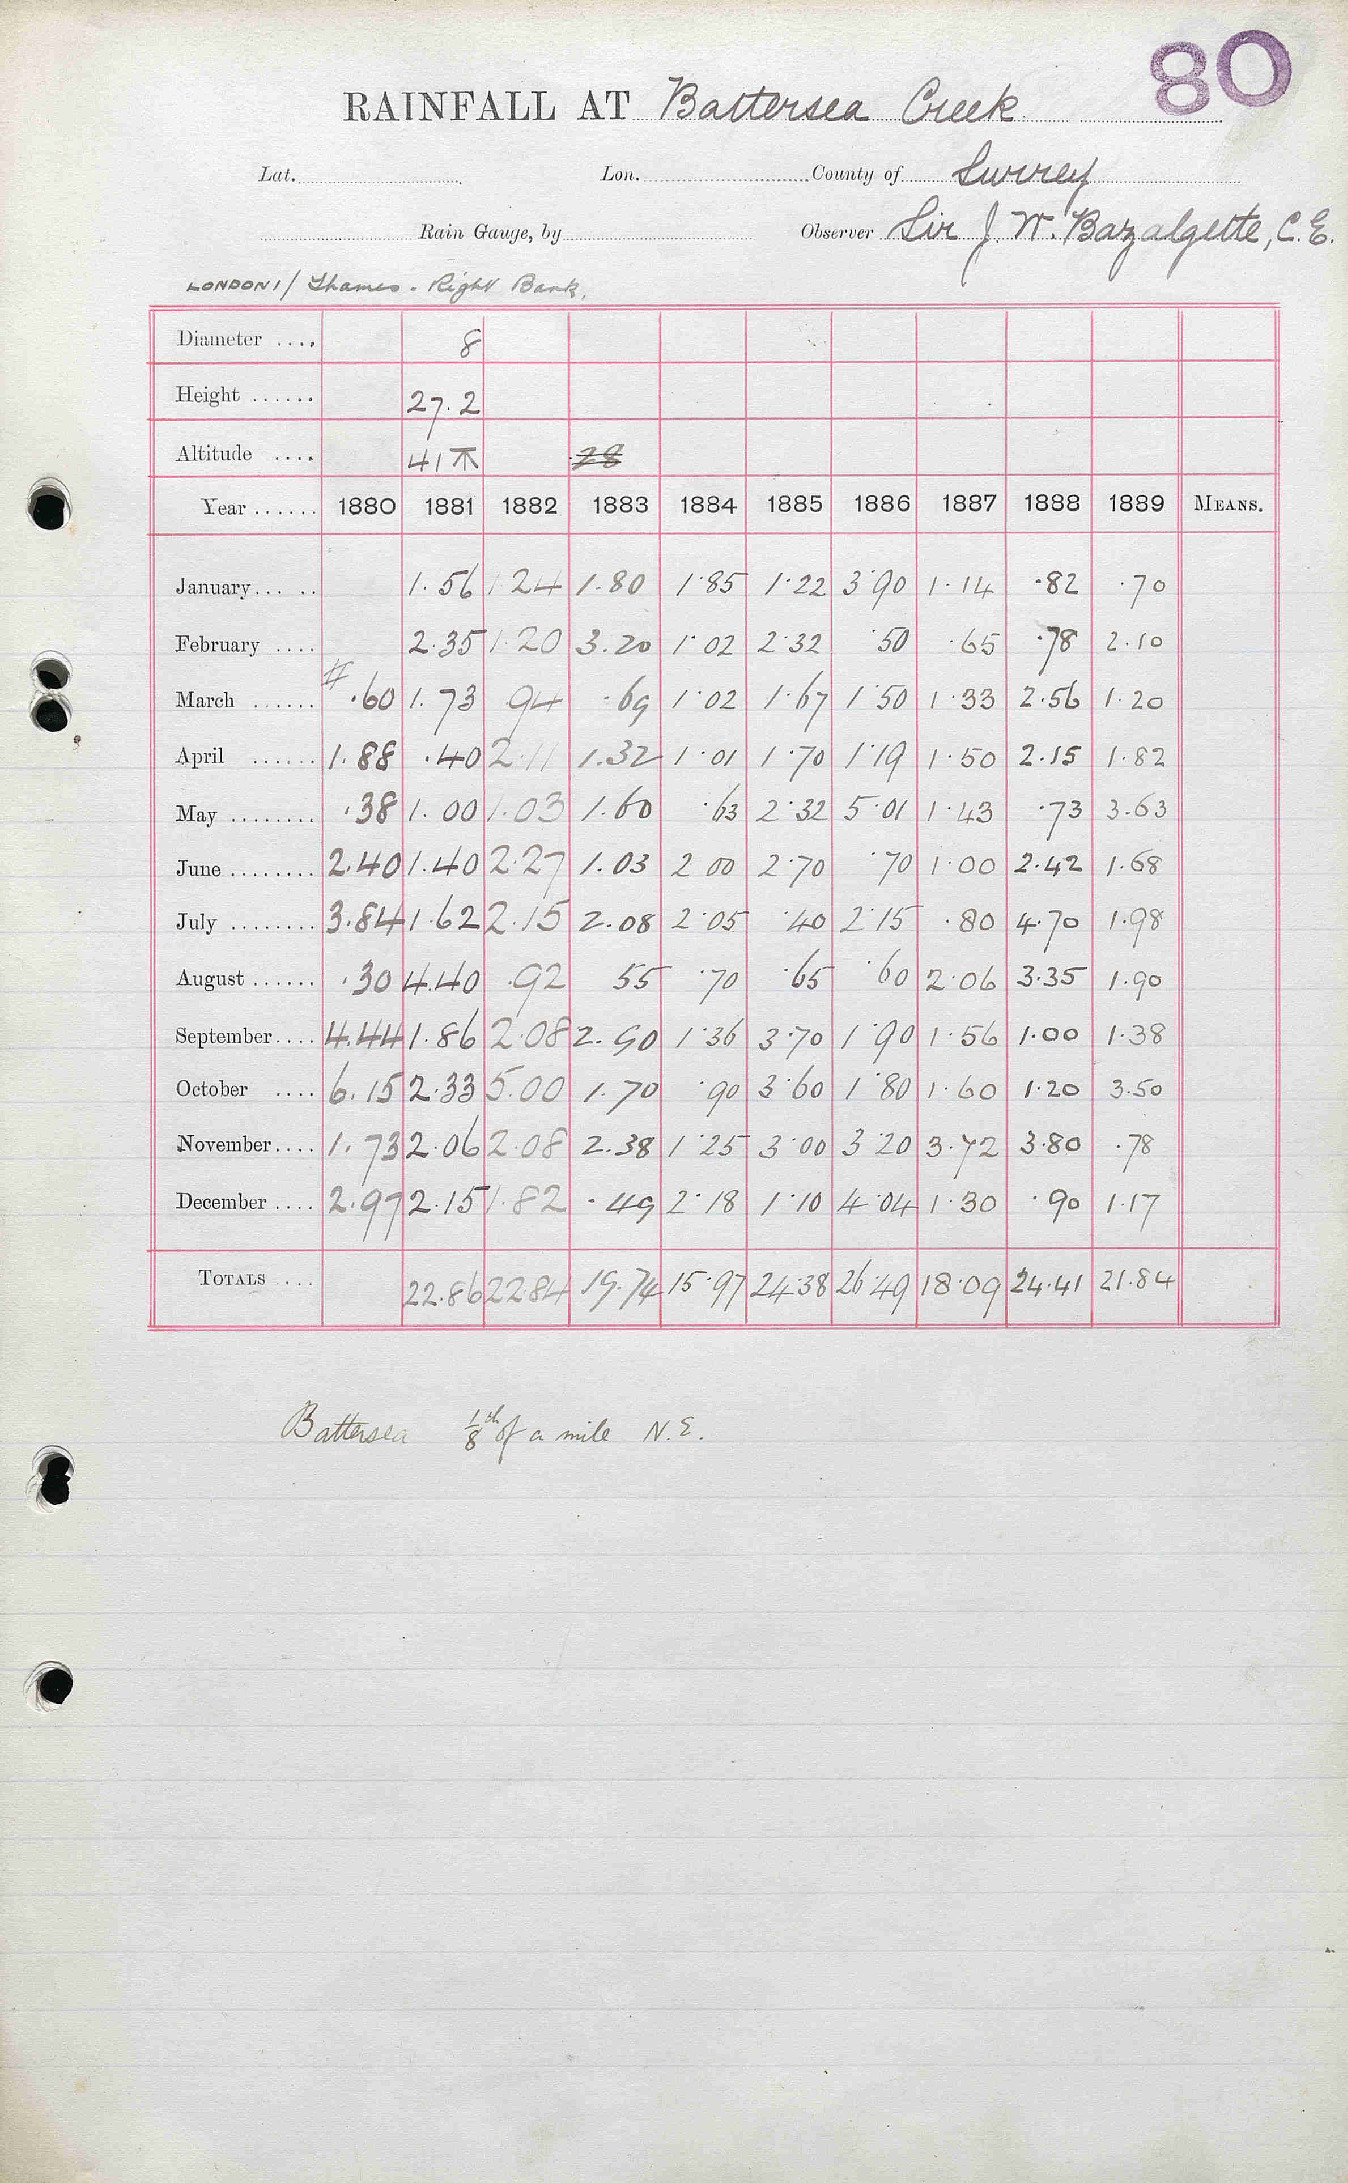 80
RAINFALL AT Battersea Creek
Lat. Lon. County of Surrey
Rain Gauge, by Observer Sir J. W. Bazalgette, C.E.
LONDON 1/ Thames - Right Bank.
Diameter .... 8
Height ...... 27.2
Altitude .... 41 28
Year ...... 1880 1881 1882 1883 1884 1885 1886 1887 1888 1889 MEANS.
January... .. 1.56 1.24 1.80 1.85 1.22 3.90 1.14 .82 .70
February .... 2.35 1.20 3.20 1.02 2.32 .50 .65 .78 2.10
March ...... # .60 1.73 .94 .69 1.02 1.67 1.50 1.33 2.56 1.20
April ...... 1.88 .40 2.11 1.32 1.01 1.70 1.19 1.50 2.15 1.82
May ........ .38 1.00 1.03 1.60 .63 2.32 5.01 1.43 .73 3.63
June ........ 2.40 1.40 2.27 1.03 2.00 2.70 .70 1.00 2.42 1.68
July ........ 3.84 1.62 2.15 2.08 2.05 .40 2.15 .80 4.70 1.98
August ...... .30 4.40 .92 55 .70 .65 .60 2.06 3.35 1.90
September.... 4.44 1.86 2.08 2.90 1.36 3.70 1.90 1.56 1.00 1.38
October .... 6.15 2.33 5.00 1.70 .90 3.60 1.80 1.60 1.20 3.50
November.... 1.73 2.06 2.08 2.38 1.25 3.00 3.20 3.72 3.80 .78
December .... 2.97 2.15 1.82 .49 2.18 1.10 4.04 1.30 .90 1.17
TOTALS .... 22.86 22.84 19.74 15.97 24.38 26.49 18.09 24.41 21.84
Battersea 1/8th of a mile N.E.